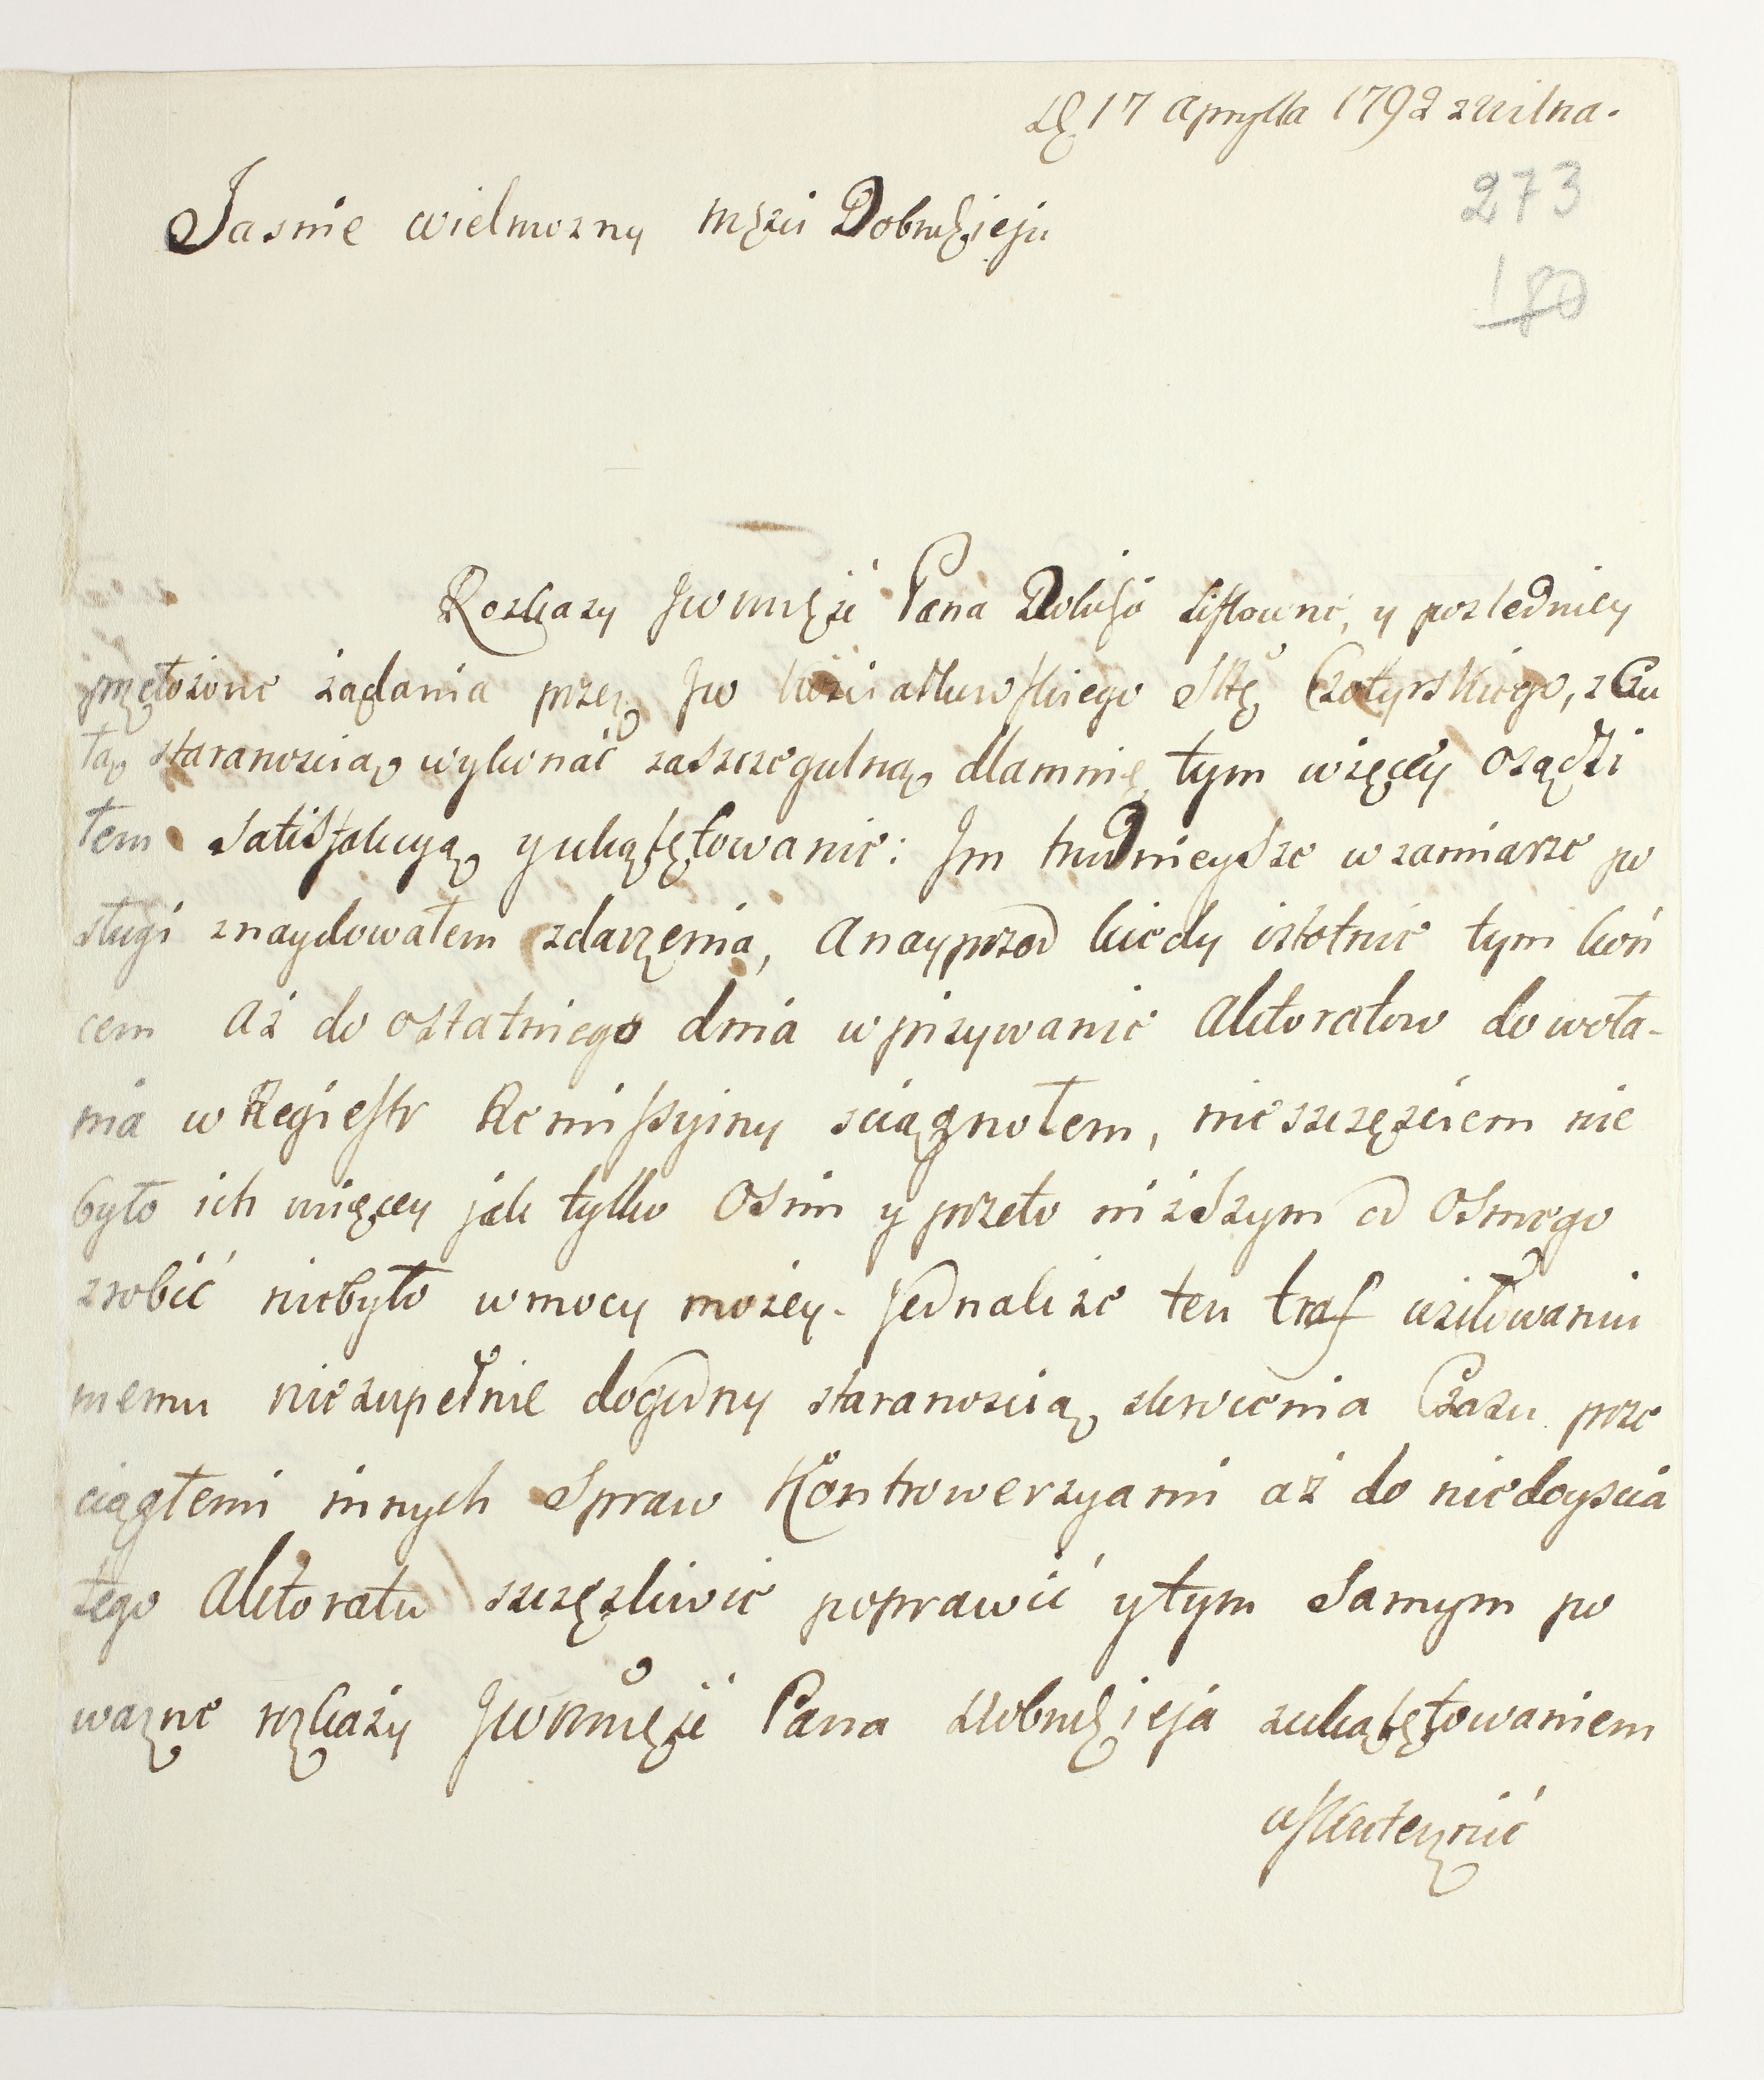 D 17 Aprylla 1792 z Wilna.
273
180
Jasnie wielmozny Mści Dobrodzieju
Rozkazy Jww Pana Dobrো listowne, y posledniey
przełozone żądania przez Jw Kościałkowskiego Stę Czotyrskiego, z Czu
łą staranoscią wykonać zaszczegulną dlamnie tym więcey osądzi
łem Satisfakcyą y ukątętowanie: Im trudnieysze w zamiarze po
sługi znaydowałem zdarzenia, a nayprzod kiedy istotnie tym koń
cem aż do ostatniego dnia wpisywanie Aktoratow do woła-
nia w Regiestr Remissyiny sciągnołem, nieszczęściem nie
było ich więcey jak tylko Osim y przeto niższym od Osmego
zrobić niebyło w mocy mojey. Jednak że ten traf usiłowaniu
memu niezupełnie dogodny staranoscią skrucenia Czasu prze
ciągłemi innych Spraw Kontrowersyami aż do niedoyscia
tego Aktoratu szczęsliwie poprawić y tym Samym po
wazne rozkazy Jww Pana Dobrodzieja zukątętowaniem
uskutecznić